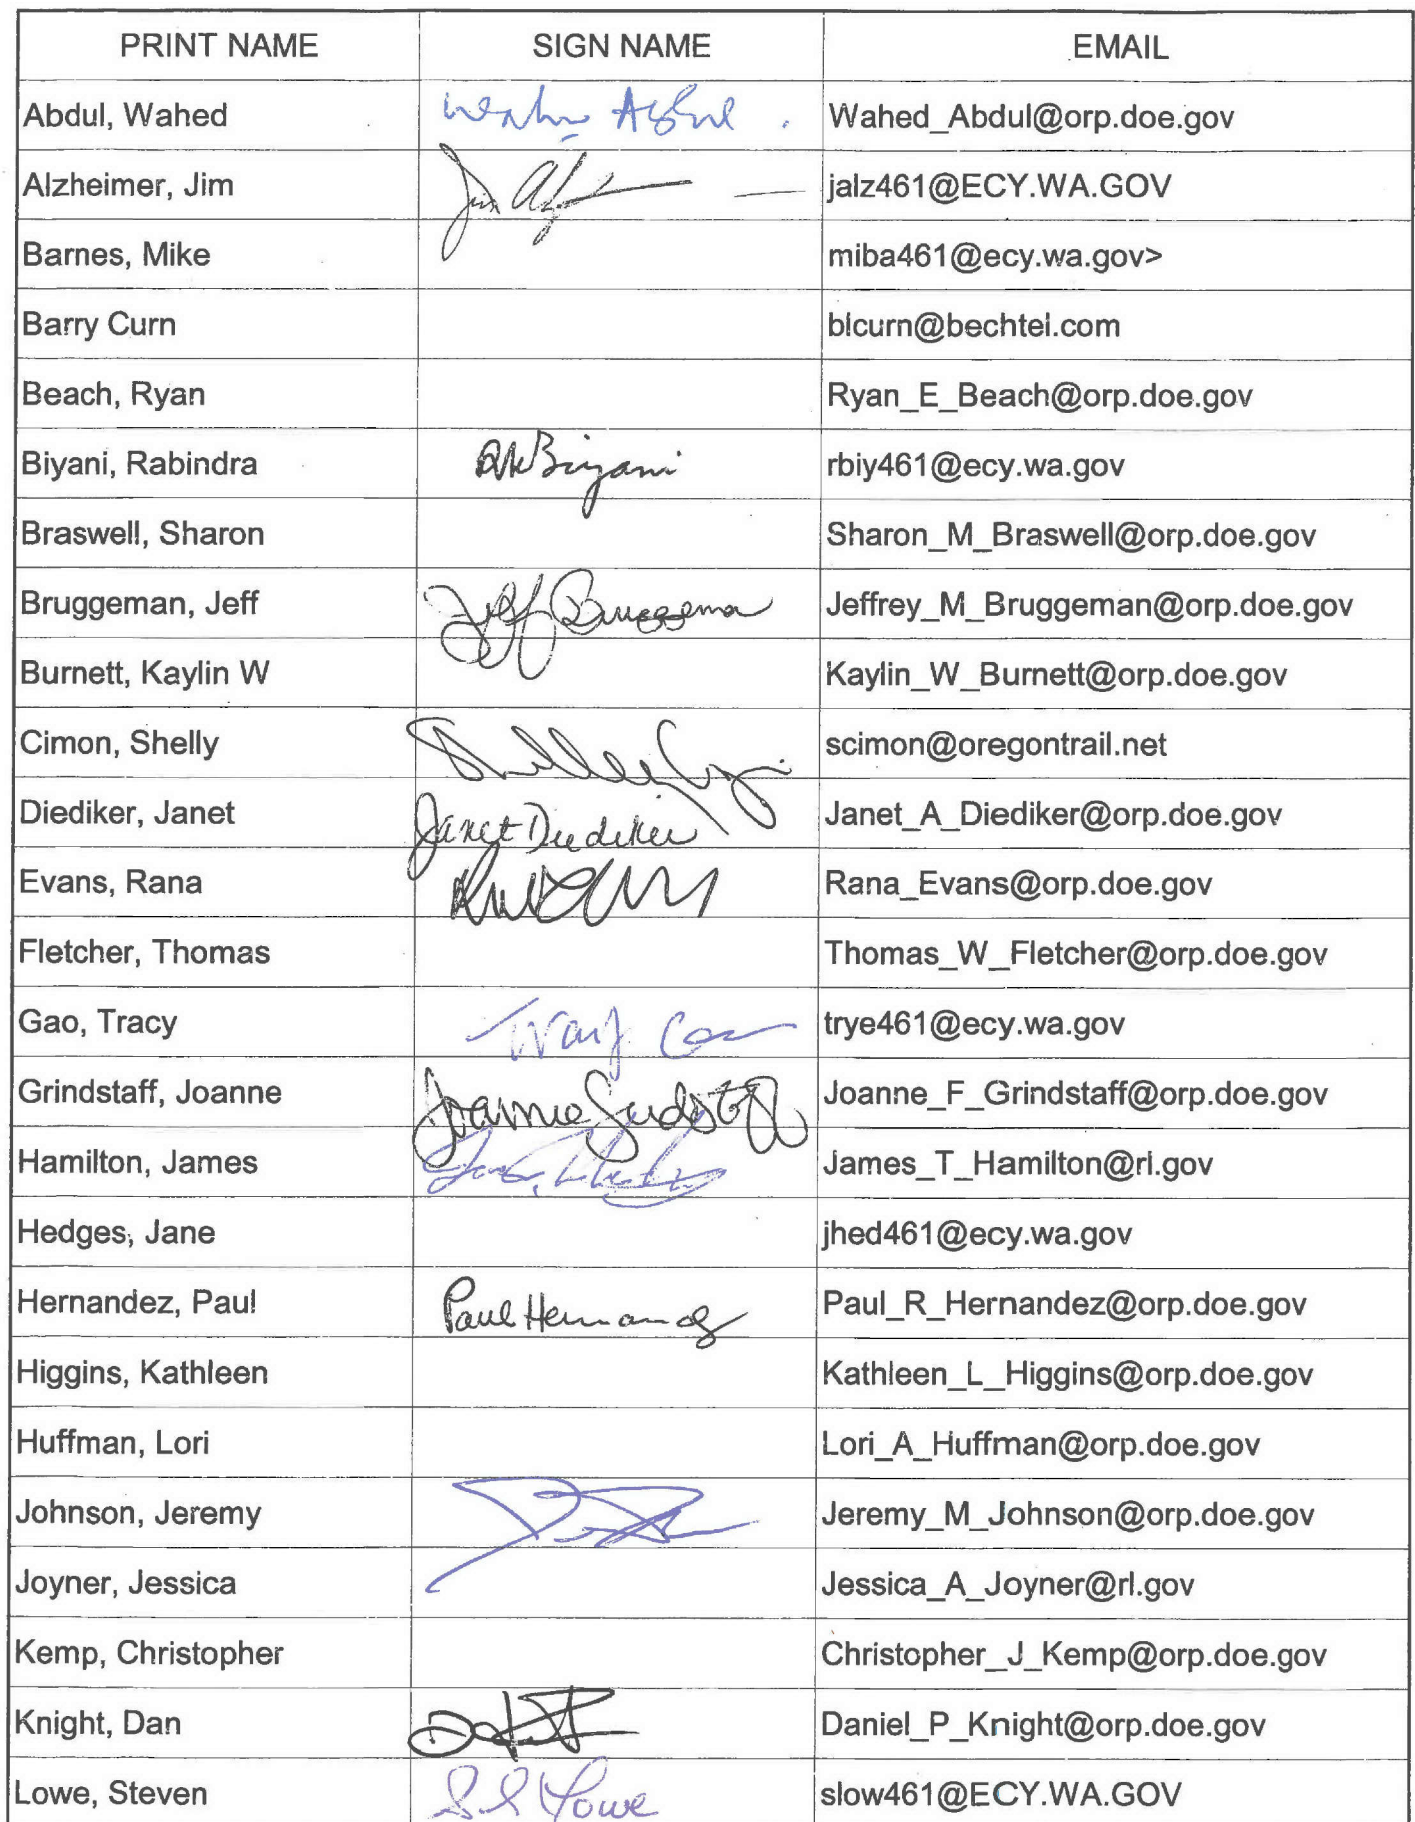 PRINT NAME SIGN NAME EMAIL
Abdul, Wahed Wahed_Abdul@orp.doe.gov
Alzheimer, Jim Jim jalz461@ECY.WA.GOV
Barnes, Mike miba461@ecy.wa.gov>
Barry Curn blcurn@bechtel.com
Beach, Ryan Ryan_E_Beach@orp.doe.gov
Biyani, Rabindra RK Biyani rbiy461@ecy.wa.gov
Braswell, Sharon Sharon_M_Braswell@orp.doe.gov
Bruggeman, Jeff Jeff Bruggeman Jeffrey_M_Bruggeman@orp.doe.gov
Burnett, Kaylin W Kaylin_W_Burnett@orp.doe.gov
Cimon, Shelly Shelley Cimon scimon@oregontrail.net
Diediker, Janet Janet Diediker Janet_A_Diediker@orp.doe.gov
Evans, Rana Rana_Evans@orp.doe.gov
Fletcher, Thomas Thomas_W_Fletcher@orp.doe.gov
Gao, Tracy Tracy Gao trye461@ecy.wa.gov
Grindstaff, Joanne Joanne Grindstaff Joanne_F_Grindstaff@orp.doe.gov
Hamilton, James James_T_Hamilton@rl.gov
Hedges, Jane jhed461@ecy.wa.gov
Hernandez, Paul Paul Hernandez Paul_R_Hernandez@orp.doe.gov
Higgins, Kathleen Kathleen_L_Higgins@orp.doe.gov
Huffman, Lori Lori_A_Huffman@orp.doe.gov
Johnson, Jeremy Jeremy_M_Johnson@orp.doe.gov
Joyner, Jessica Jessica_A_Joyner@rl.gov
Kemp, Christopher Christopher_J_Kemp@orp.doe.gov
Knight, Dan Daniel_P_Knight@orp.doe.gov
Lowe, Steven S.L Lowe slow461@ECY.WA.GOV